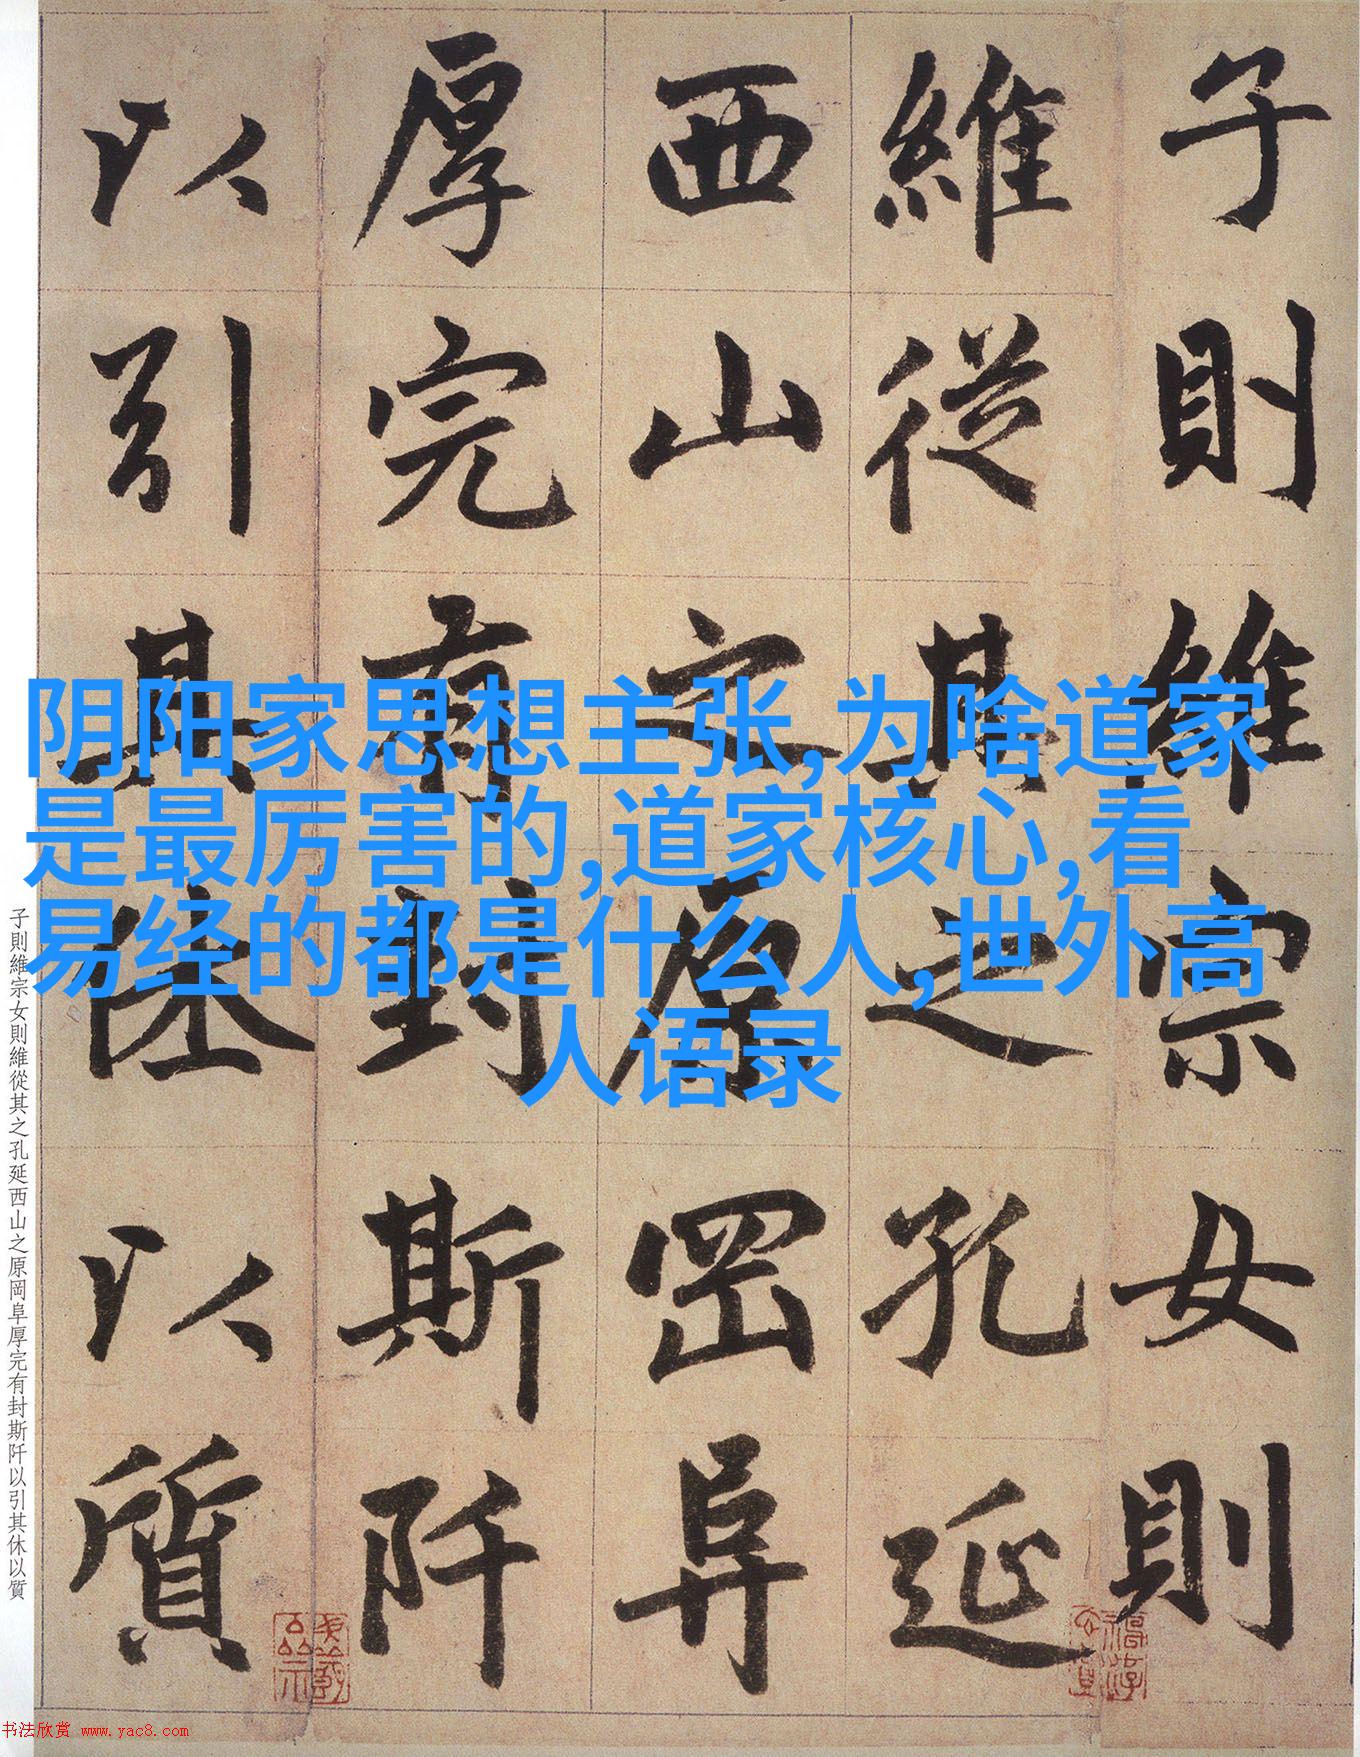 子則維宗女則
維從其之孔延
西山之原罡阜
厚完有封斯阡
以引其休以質
阴阳家思想主张,为啥道家
是最厉害的,道家核心,看
易经的都是什么人,世外高
人语录
子則維宗女則維從其之孔延西山之原岡阜厚完有封斯阡以引其休以質
书法欣赏 www.yac8.com